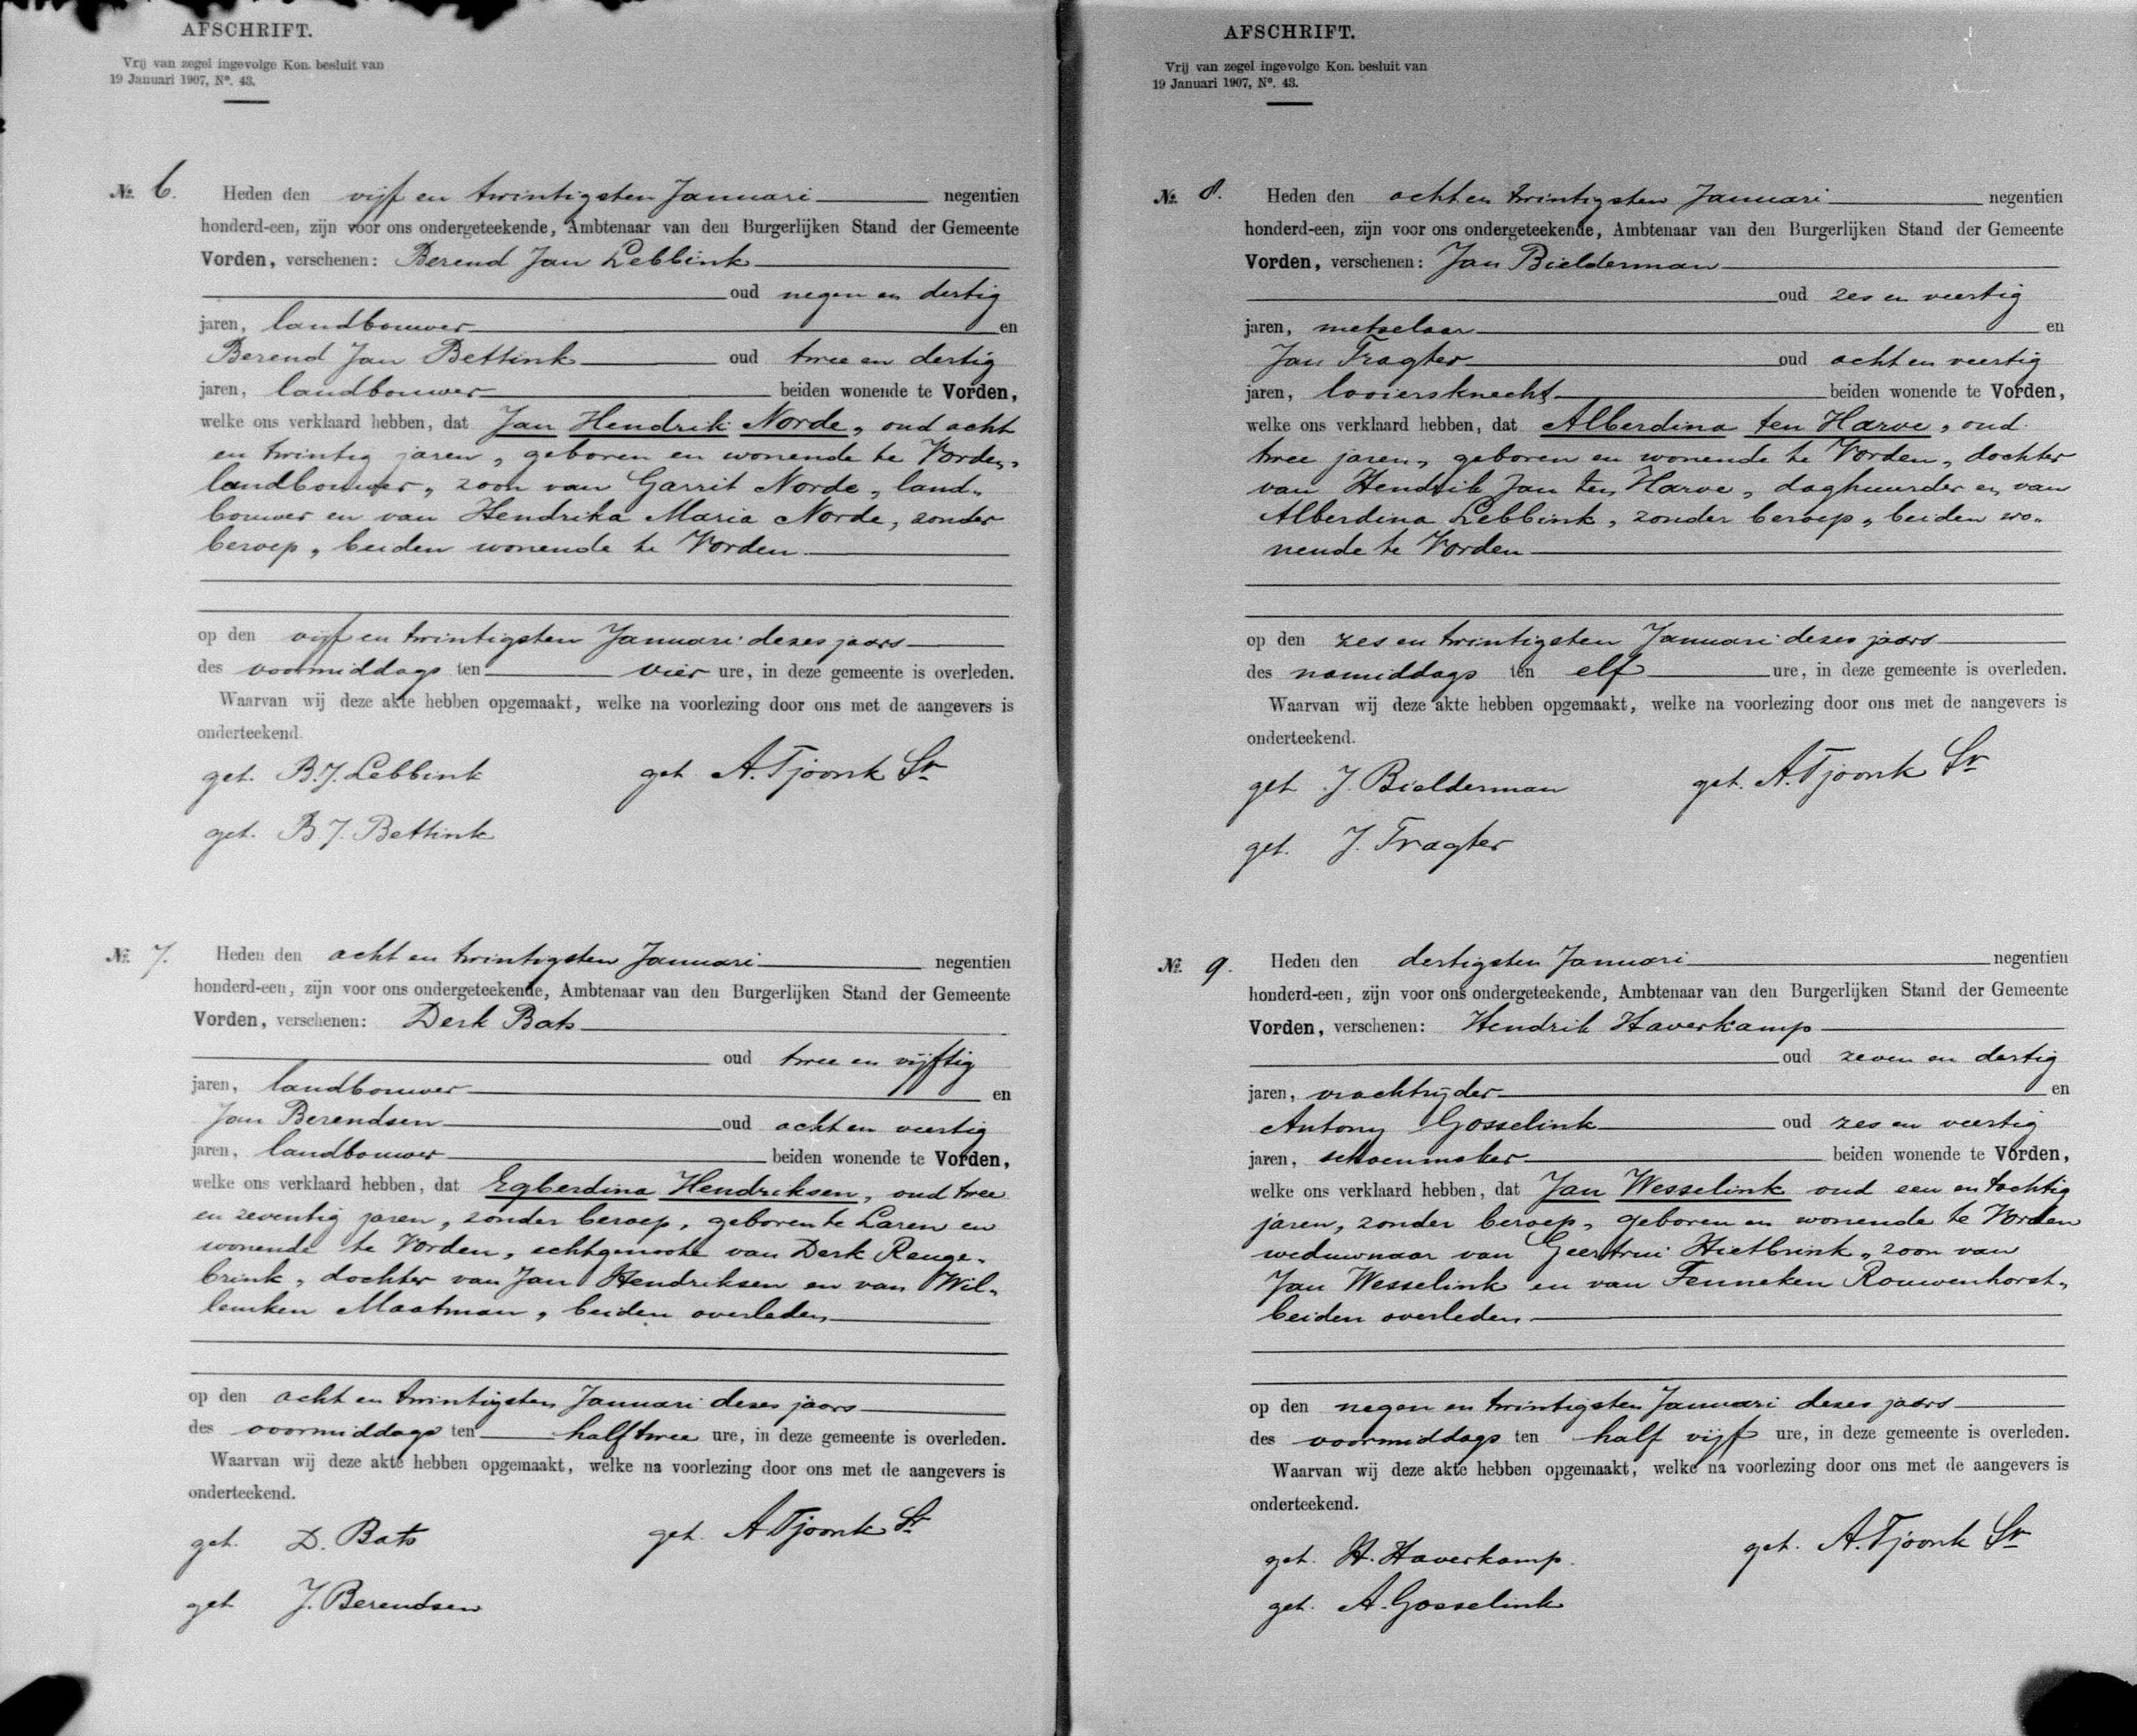 AFSCHRIFT.
Vrij van zegel ingevolge Kon. besluit van
19 Januari 1907, No. 43.
No. 6. Heden den vijf en twintigsten Januari negentien
honderd-een, zijn voor ons ondergeteekende, Ambtenaar van den Burgerlijken Stand der Gemeente
Vorden, verschenen: Berend Jan Lebbink
oud negen en dertig
jaren, landbouwer en
Berend Jan Bettink oud twee en dertig
jaren, landbouwer beiden wonende te Vorden,
welke ons verklaard hebben, dat Jan Hendrik Norde, oud acht
en twintig jaren, geboren en wonende te Vorden,
landbouwer, zoon van Garrit Norde, land„
bouwer en van Hendrika Maria Norde, zonder
beroep, beiden wonende te Vorden
op den vijf en twintigsten Januari dezes jaars
des voormiddags ten vier ure, in deze gemeente is overleden.
Waarvan wij deze akte hebben opgemaakt, welke na voorlezing door ons met de aangevers is
onderteekend.
get. B.J. Lebbink get A. Tjoonk Sr
get. B.J. Bettink
No. 7. Heden den acht en twintigsten Januari negentien
honderd-een, zijn voor ons ondergeteekende, Ambtenaar van den Burgerlijken Stand der Gemeente
Vorden, verschenen: Derk Bats
oud twee en vijftig
jaren, landbouwer en
Jan Berendsen oud acht en veertig
jaren, landbouwer beiden wonende te Vorden,
welke ons verklaard hebben, dat Egberdina Hendriksen, oud twee
en zeventig jaren, zonder beroep, geboren te Laren en
wonende te Vorden, echtgenoote van Derk Reuge„
brink, dochter van Jan Hendriksen en van Wil„
lemken Maatman, beiden overleden
op den acht en twintigsten Januari dezes jaars
des voormiddags ten half twee ure, in deze gemeente is overleden.
Waarvan wij deze akte hebben opgemaakt, welke na voorlezing door ons met de aangevers is
onderteekend.
get. D. Bats get. A Tjoonk Sr
get J. Berendsen
AFSCHRIFT.
Vrij van zegel ingevolge Kon. besluit van
19 Januari 1907, No. 43.
No. 8. Heden den acht en twintigsten Januari negentien
honderd-een, zijn voor ons ondergeteekende, Ambtenaar van den Burgerlijken Stand der Gemeente
Vorden, verschenen: Jan Bielderman
oud zes en veertig
jaren, metselaar en
Jan Tragter oud acht en veertig
jaren, looiersknecht beiden wonende te Vorden,
welke ons verklaard hebben, dat Alberdina ten Harve, oud
twee jaren, geboren en wonende te Vorden, dochter
van Hendrik Jan ten Harve, daghuurder en van
Alberdina Lebbink, zonder beroep, beiden wo„
nende te Vorden
op den zes en twintigsten Januari dezes jaars
des namiddags ten elf ure, in deze gemeente is overleden.
Waarvan wij deze akte hebben opgemaakt, welke na voorlezing door ons met de aangevers is
onderteekend.
get. J. Bielderman get. A. Tjoonk Sr
get. J. Tragter
No. 9. Heden den dertigsten Januari negentien
honderd-een, zijn voor ons ondergeteekende, Ambtenaar van den Burgerlijken Stand der Gemeente
Vorden, verschenen: Hendrik Haverkamp
oud zeven en dertig
jaren, vrachtrijder en
Antony Gosselink oud zes en veertig
jaren, schoenmaker beiden wonende te Vorden,
welke ons verklaard hebben, dat Jan Wesselink oud een en tachtig
jaren, zonder beroep, geboren en wonende te Vorden
weduwnaar van Geertrui Hietbrink, zoon van
Jan Wesselink en van Fenneken Rouwenhorst,
beiden overleden
op den negen en twintigsten Januari dezes jaars
des voormiddags ten half vijf ure, in deze gemeente is overleden.
Waarvan wij deze akte hebben opgemaakt, welke na voorlezing door ons met de aangevers is
onderteekend.
get. H. Haverkamp. get. A. Tjoonk Sr
get. A. Gosselink